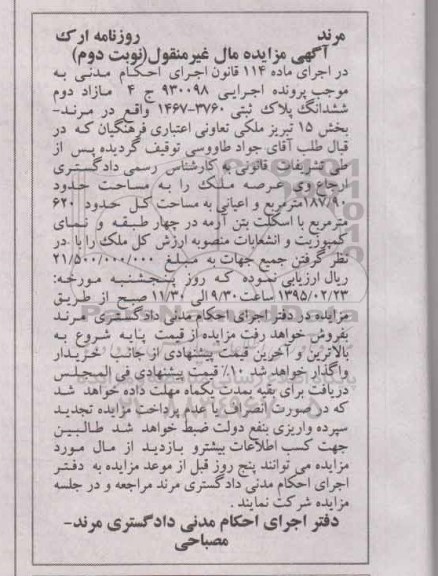 مرند روزنامه ارک
آگهی مزایده مال غیرمنقول(نوبت دوم)
در اجرای ماده ۱۱۴ قانون اجرای احکام مدنی به
موجب پرونده اجرایی ۹۳۰۰۹۸ ج ۴ مازاد دوم
ششدانگ پلاک ثبتی ۳۷۶۰-۱۴۶۷ واقع در مرند-
بخش ۱۵ تبریز ملکی تعاونی اعتباری فرهنگیان که در
قبال طلب آقای جواد طاووسی توقیف گردیده پس از
طی تشریفات قانونی به کارشناس رسمی دادگستری
ارجاع وی عرصه ملک را به مساحت حدود
۱۸۷/۹۰مترمربع و اعیانی به مساحت کل حدود ۶۲۰
مترمربع با اسکلت بتن آرمه در چهار طبقه و نمای
کمپوزیت و انشعابات منصوبه ارزش کل ملک را با در
نظر گرفتن جمیع جهات به مبلغ ۲۱/۵۰۰/۰۰۰/۰۰۰
ریال ارزیابی نموده که روز پنجشنبه مورخه:
۱۳۹۵/۰۲/۲۳ ساعت ۹/۳۰ الی ۱۱/۳۰ صبح از طریق
مزایده در دفتر اجرای احکام مدنی دادگستری مرند
بفروش خواهد رفت مزایده از قیمت پایه شروع به
بالاترین و آخرین قیمت پیشنهادی از جانب خریدار
واگذار خواهد شد ۱۰٪ قیمت پیشنهادی فی المجلس
دریافت برای بقیه بمدت یکماه مهلت داده خواهد شد
که در صورت انصراف یا عدم پرداخت مزایده تجدید
سپرده واریزی بنفع دولت ضبط خواهد شد طالبین
جهت کسب اطلاعات بیشترو بازدید از مال مورد
مزایده می توانند پنج روز قبل از موعد مزایده به دفتر
اجرای احکام مدنی دادگستری مرند مراجعه و در جلسه
مزایده شرکت نمایند .
دفتر اجرای احکام مدنی دادگستری مرند-
مصباحی